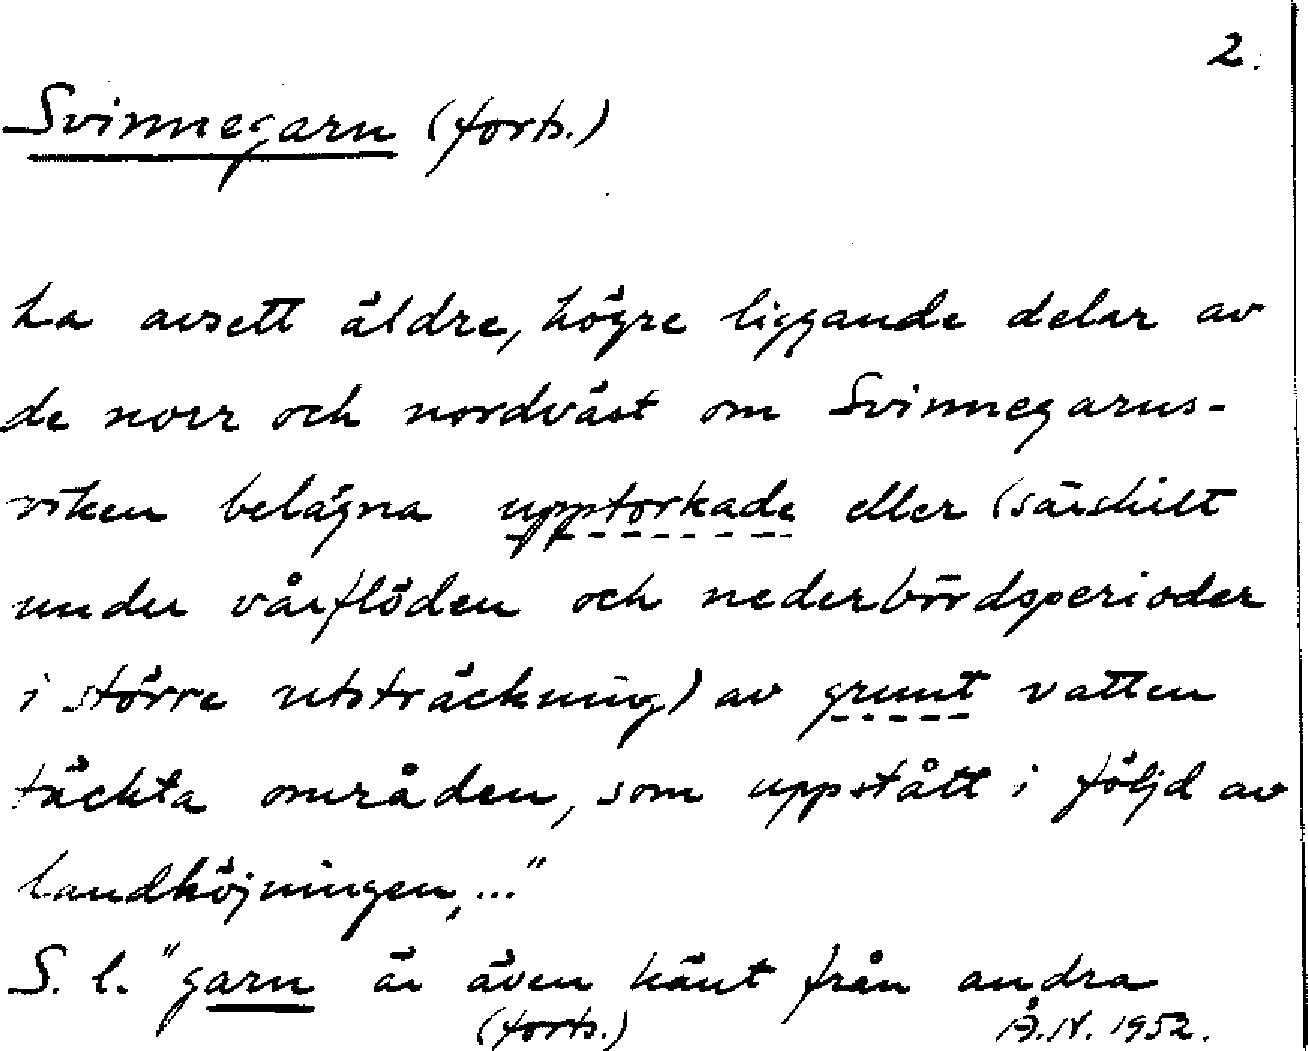 2.
Svinnegarn (forts.)
ha avsett äldre, högre liggande delar av
de norr och nordväst om Svinnegarns-
viken belägna upptorkade eller (särskilt
under vårflöden och nederbördsperioder
i större utsträckning) av grunt vatten
täckta områden, som uppstått i följd av
landhöjningen, ..."
S. l. "garn är även känt från andra
(forts.) Å.N. 1952.